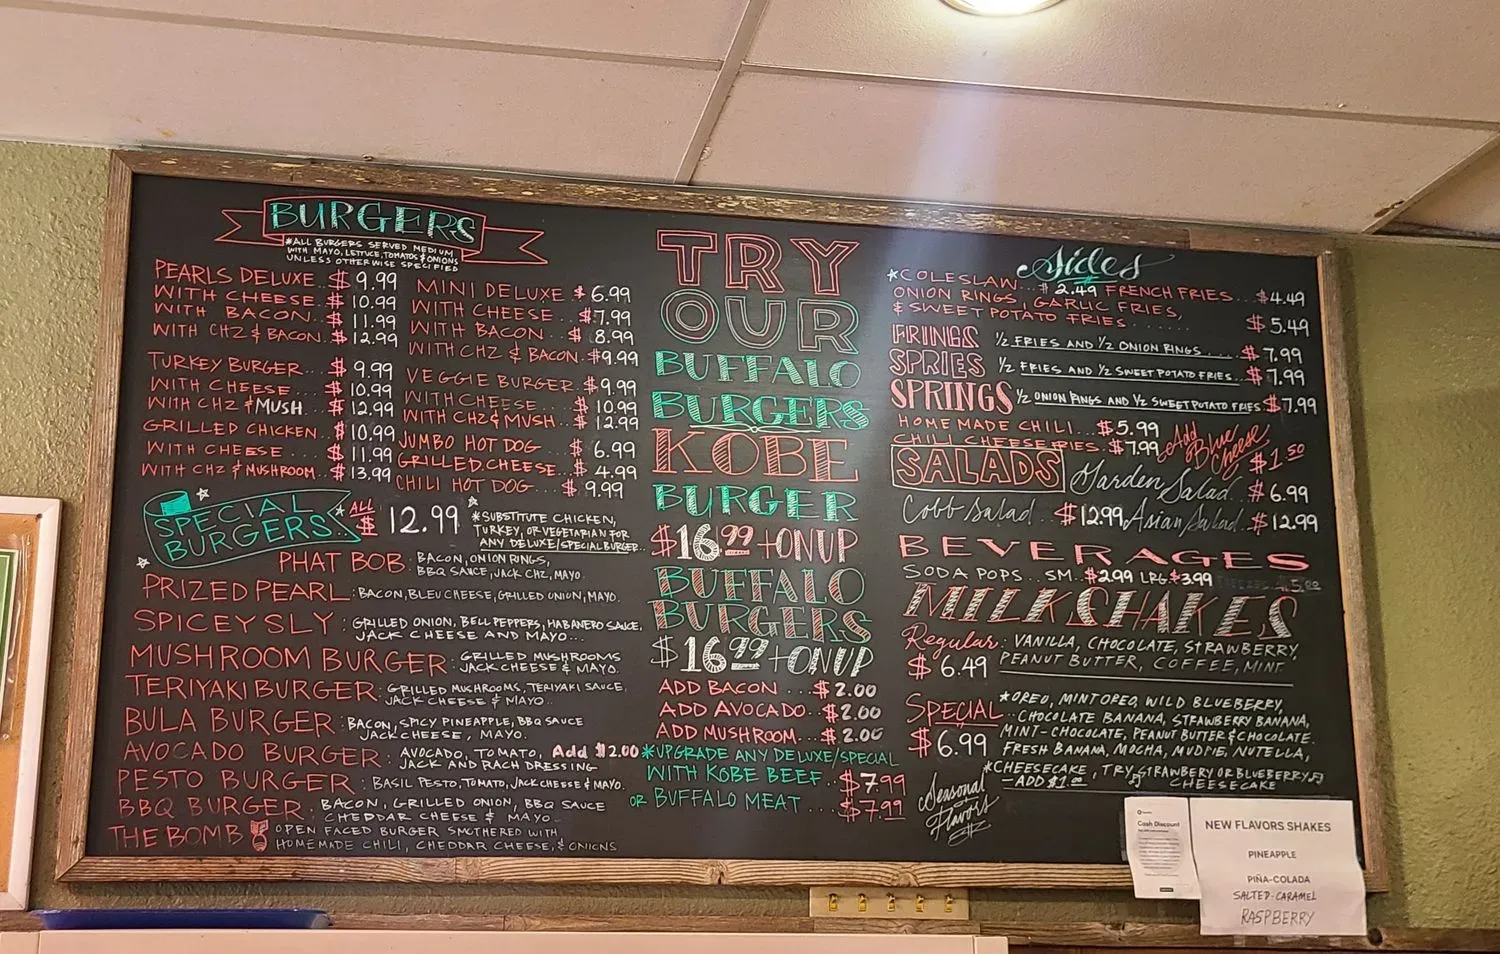 BURGERS
*ALL BURGERS SERVED MEDIUM
WITH MAYO, LETTUCE, TOMATOS & ONIONS
UNLESS OTHERWISE SPECIFIED
PEARLS DELUXE.. $ 9.99
WITH CHEESE... $ 10.99
WITH BACON... $ 11.99
WITH CHZ & BACON.. $ 12.99
TURKEY BURGER... $ 9.99
WITH CHEESE.... $ 10.99
WITH CHZ & MUSH.. $ 12.99
GRILLED CHICKEN.. $ 10.99
WITH CHEESE .... $ 11.99
WITH CHZ & MUSHROOM.. $ 13.99
MINI DELUXE $ 6.99
WITH CHEESE ... $7.99
WITH BACON .. $ 8.99
WITH CHZ & BACON. $9.99
VEGGIE BURGER. $9.99
WITH CHEESE... $ 10.99
WITH CHZ & MUSH.. $ 12.99
JUMBO HOT DOG .. $ 6.99
GRILLED CHEESE... $ 4.99
CHILI HOT DOG... $ 9.99
SPECIAL
BURGERS..
*ALL $ 12.99 *
*SUBSTITUTE CHICKEN,
TURKEY, OR VEGETARIAN FOR
ANY DELUXE/SPECIAL BURGER...
PHAT BOB: BACON, ONION RINGS,
BBQ SAUCE, JACK CHZ, MAYO.
PRIZED PEARL: BACON, BLEU CHEESE, GRILLED ONION, MAYO.
SPICEY SLY : GRILLED ONION, BELL PEPPERS, HABANERO SAUCE,
JACK CHEESE AND MAYO...
MUSHROOM BURGER: GRILLED MUSHROOMS
JACK CHEESE & MAYO.
TERIYAKI BURGER: GRILLED MUSHROOMS, TERIYAKI SAUCE,
JACK CHEESE & MAYO..
BULA BURGER : BACON, SPICY PINEAPPLE, BBQ SAUCE
JACK CHEESE, MAYO.
AVOCADO BURGER: AVOCADO, TOMATO, Add $2.00
JACK AND RACH DRESSING
PESTO BURGER : BASIL PESTO, TOMATO, JACK CHEESE & MAYO.
BBQ BURGER: BACON, GRILLED ONION, BBQ SAUCE
CHEDDAR CHEESE & MAYO..
THE BOMB OPEN FACED BURGER SMOTHERED WITH
HOMEMADE CHILI, CHEDDAR CHEESE, & ONIONS
TRY
OUR
BUFFALO
BURGERS
KOBE
BURGER
$16.99 + ON UP
BUFFALO
BURGERS
$16.99 + ON UP
ADD BACON ... $ 2.00
ADD AVOCADO.. $2.00
ADD MUSHROOM... $ 2.00
*UPGRADE ANY DELUXE/SPECIAL
WITH KOBE BEEF.. $7.99
OR BUFFALO MEAT ... $7.99
Sides
*COLESLAW... $ 2.49 FRENCH FRIES... $4.49
ONION RINGS, GARLIC FRIES,
& SWEET POTATO FRIES ...... $ 5.49
FRINGS 1/2 FRIES AND 1/2 ONION RINGS ... $ 7.99
SPRIES 1/2 FRIES AND 1/2 SWEET POTATO FRIES... $ 7.99
SPRINGS 1/2 ONION RINGS AND 1/2 SWEET POTATO FRIES $7.99
HOME MADE CHILI... $5.99
CHILI CHEESE FRIES. $ 7.99
Add Blue Cheese $1.50
SALADS
Garden Salad.. $6.99
Cobb Salad .. $12.99 Asian Salad.. $12.99
BEVERAGES
SODA POPS .. SM. $2.99 LRG $3.99
MILKSHAKES
Regular: VANILLA, CHOCOLATE, STRAWBERRY,
$ 6.49 PEANUT BUTTER, COFFEE, MINT
SPECIAL *OREO, MINT OREO, WILD BLUEBERRY,
CHOCOLATE BANANA, STRAWBERRY BANANA,
$6.99 MINT-CHOCOLATE, PEANUT BUTTER & CHOCOLATE.
FRESH BANANA, MOCHA, MUDPIE, NUTELLA,
*CHEESECAKE, TRY STRAWBERY OR BLUEBERRY
-ADD $1.00 CHEESECAKE
Seasonal
Flavors
Cash Discount
NEW FLAVORS SHAKES
PINEAPPLE
PIÑA-COLADA
SALTED-CARAMEL
RASPBERRY